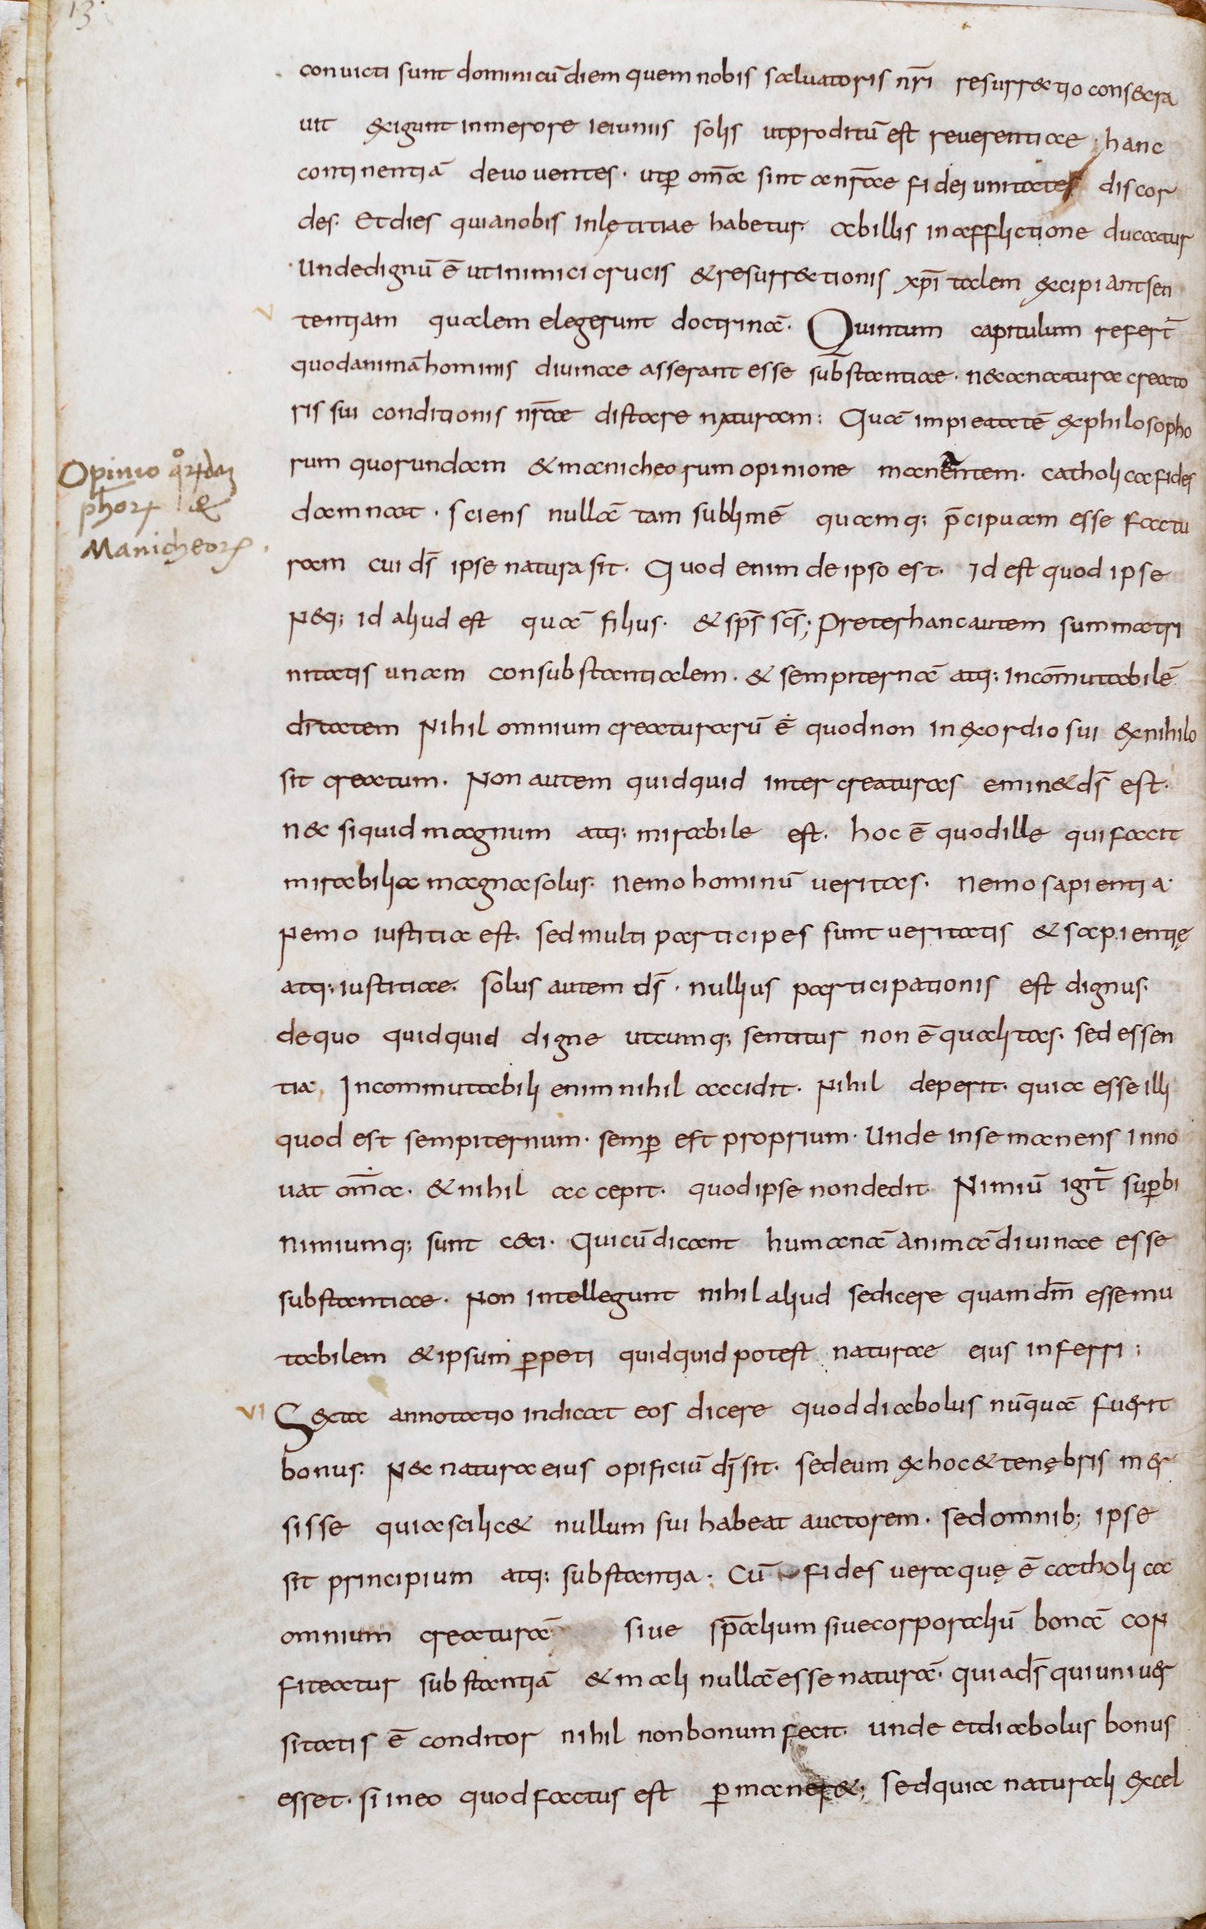 13.
convicti sunt dominicū diem quem nobis salvatoris nr̄i resurrectio consecra
vit exigunt in merore ieiuniis solis ut proditū est reverentiae hanc
continentiā devoventes· ut p̱ om̄a sint a nr̄ae fidei unitate discor
des· Et dies qui a nobis in lętitiae habetur· ab illis in afflictione ducatur
Unde dignū ē ut inimici crucis & resurrectionis xp̄i talem excipiant sen
v
tentiam qualem elegerunt doctrinā· Quintum capitulum refert̄
quod animā hominis divinae asserant esse sub̄stantiae· nec a natura creato
ris sui conditionis nr̄ae distare naturam: Quā impietatē ex philosopho
Opinio qorūdā
phōrꝝ &
Manicheorꝝ
rum quorundam & manicheorum opinione manentem· catholica fides
A
damnat· sciens nullā tam sublimē quamq; p̄cipuam esse factu
ram cui ds̄ ipse natura sit· Quod enim de ipso est· id est quod ipse
Neq; id aliud est quā filius· & sp̄s sc̄s; Preter hanc autem summā tri
nitatis unam consubstantialem· & sempiternā atq; incōmutabilē
dītatem Nihil omnium creaturarū ē quod non in exordio sui ex nihilo
sit creatum· Non autem quidquid inter creaturas eminet ds̄ est·
nec si quid magnum atq; mirabile est· hoc ē quod ille qui facit
mirabilia magna solus· Nemo hominū veritas· Nemo sapientia·
Nemo iustitia est· sed multi participes sunt veritatis & sapientię
atq; iustitiae· solus autem ds̄· nullius participationis est dignus·
de quo quidquid digne utcumq; sentitur non ē qualitas· sed essen
tia· Incommutabili enim nihil accidit· Nihil deperit· quia esse illi
quod est sempiternum· semp̱ est proprium· Unde in se manens inno
vat om̄a· & nihil accepit· quod ipse non dedit· Nimiū igit̄ sup̱bi
Nimiumq; sunt ceci· Qui cū dicant humanā animā divinae esse
substantiae· Non intellegunt nihil aliud se dicere quam dm̄ esse mu
tabilem & ipsum p̱peti quidquid potest naturae eius inferri:
vi
Sexta annotatio indicat eos dicere quod diabolus nūquā fuerit
bonus· Nec natura eius opificiū di sit· sed eum ex hoc & tenębris mer
sisse quia scilic& nullum sui habeat auctorem· sed omnib; ipse
sit principium atq; substantia· Cū fides vera quę ē catholica
omnium creaturā sive sp̄alium sive corporaliū bonā con
fiteatur substantiā & mali nullā esse naturā· quia ds̄ qui univer
sitatis ē conditor nihil non bonum fecit· unde et diabolus bonus
esset· si in eo quod factus est p̱maner&; sed quia naturali excel